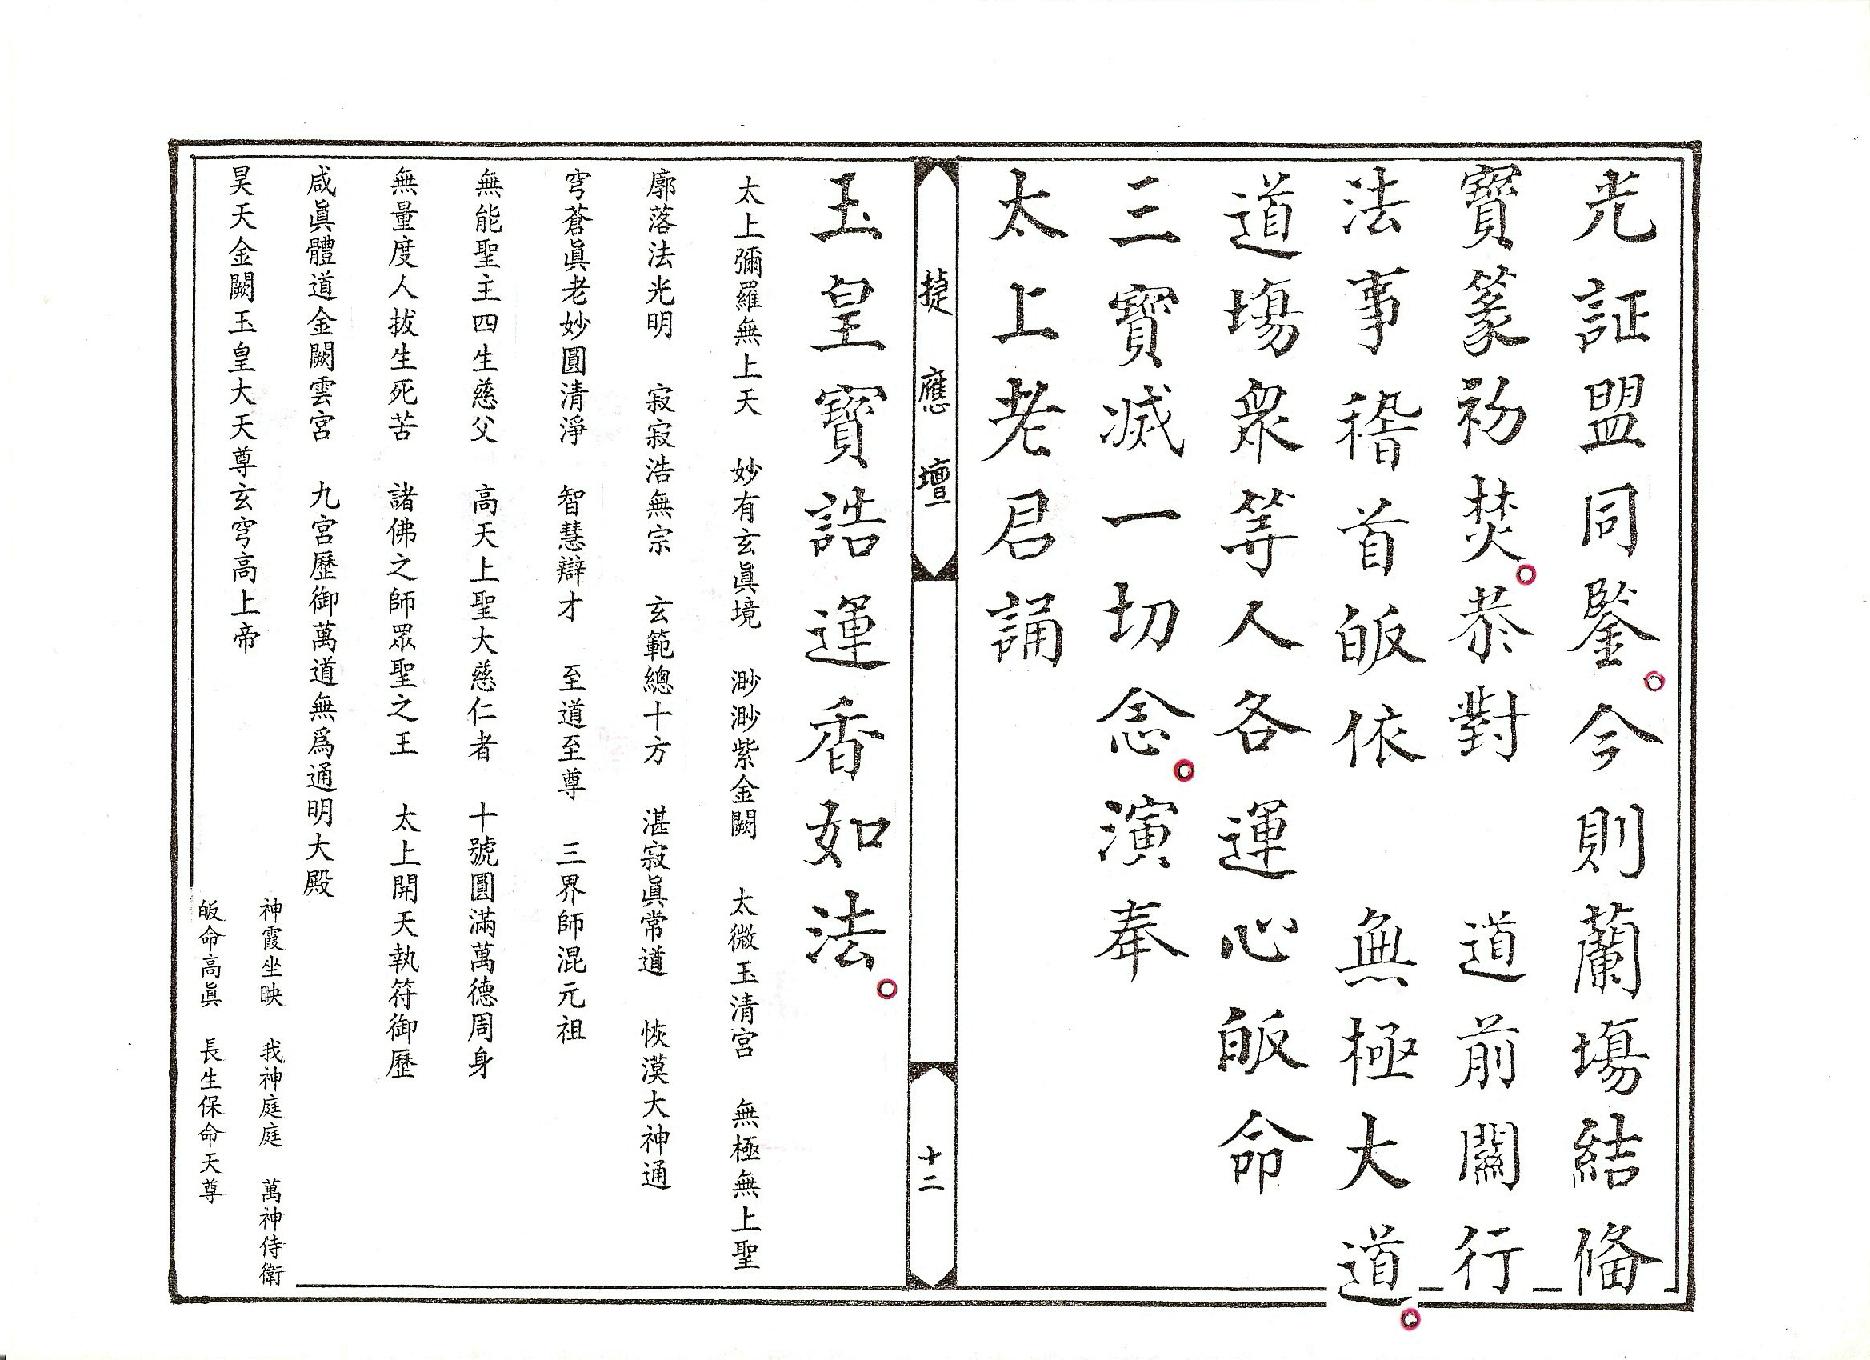 光証盟同鑒。今則蘭塲結備
寶篆初焚。恭對　道前關行
法事稽首皈依　無極大道。
道塲衆等人各運心皈命
三寶滅一切念。演奉
太上老君誦
捷應壇
十二
玉皇寶誥運香如法。
太上彌羅無上天　妙有玄眞境　渺渺紫金闕　太微玉清宮　無極無上聖
廓落法光明　寂寂浩無宗　玄範總十方　湛寂眞常道　恢漠大神通
穹蒼眞老妙圓清淨　智慧辯才　至道至尊　三界師混元祖
無能聖主四生慈父　高天上聖大慈仁者　十號圓滿萬德周身
無量度人拔生死苦　諸佛之師眾聖之王　太上開天執符御歷
咸眞體道金闕雲宮　九宮歷御萬道無爲通明大殿
昊天金闕玉皇大天尊玄穹高上帝
神霞坐映　我神庭庭　萬神侍衛
皈命高眞　長生保命天尊